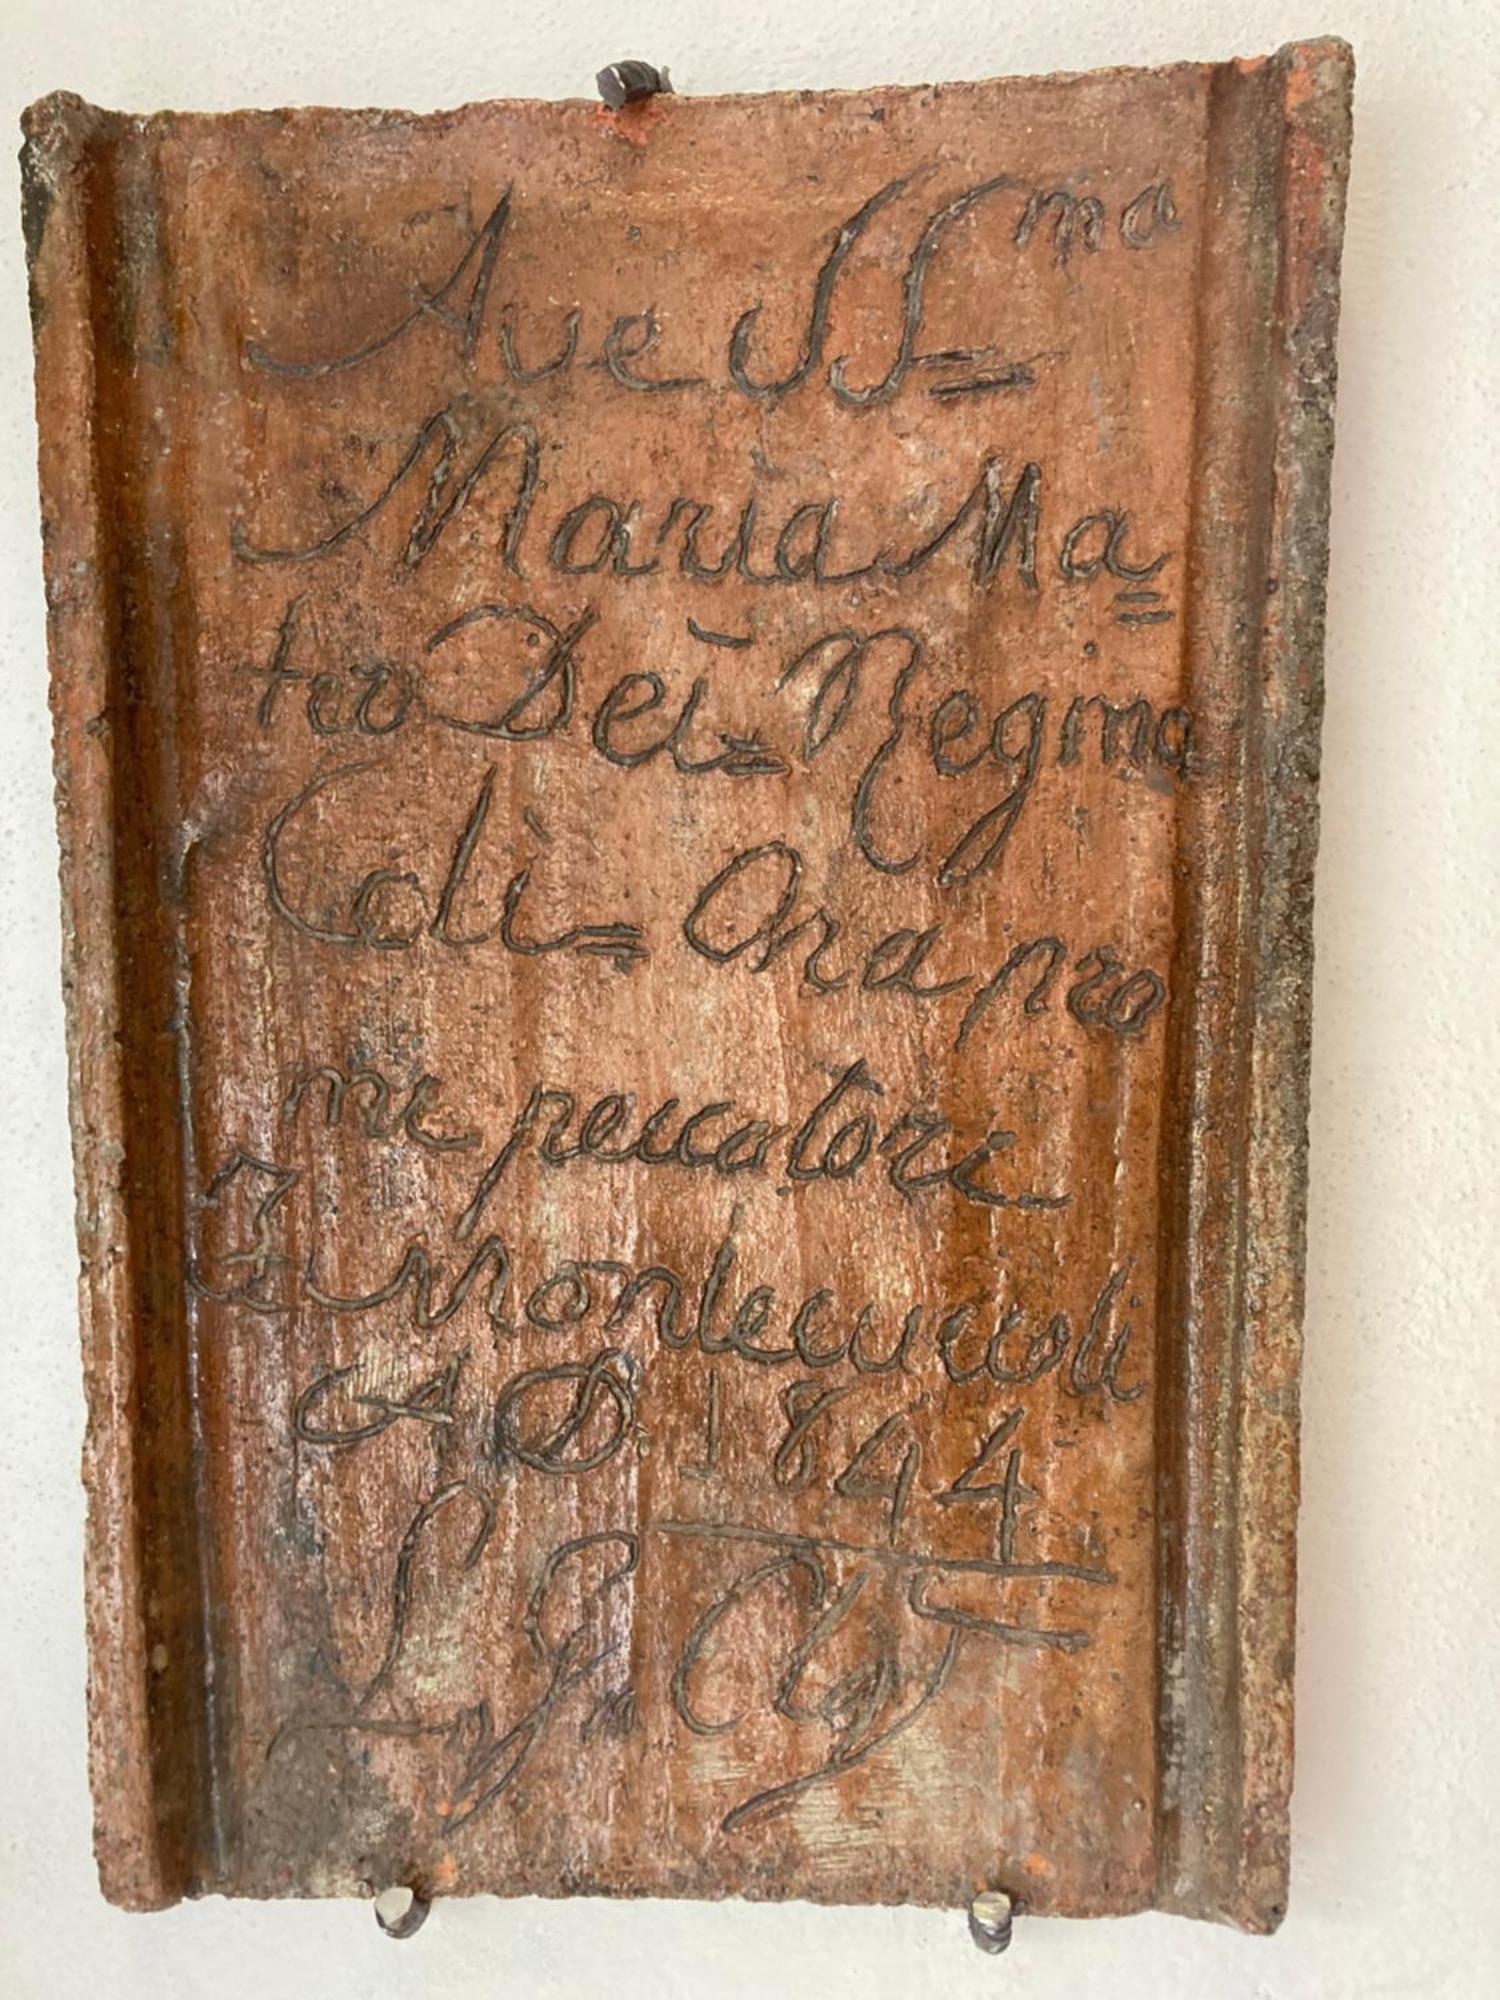 Ave SS^ma=
Maria Ma=
ter Dei= Regina
Coli= Ora pro
me peccatori
Montecuccoli
A D 1844